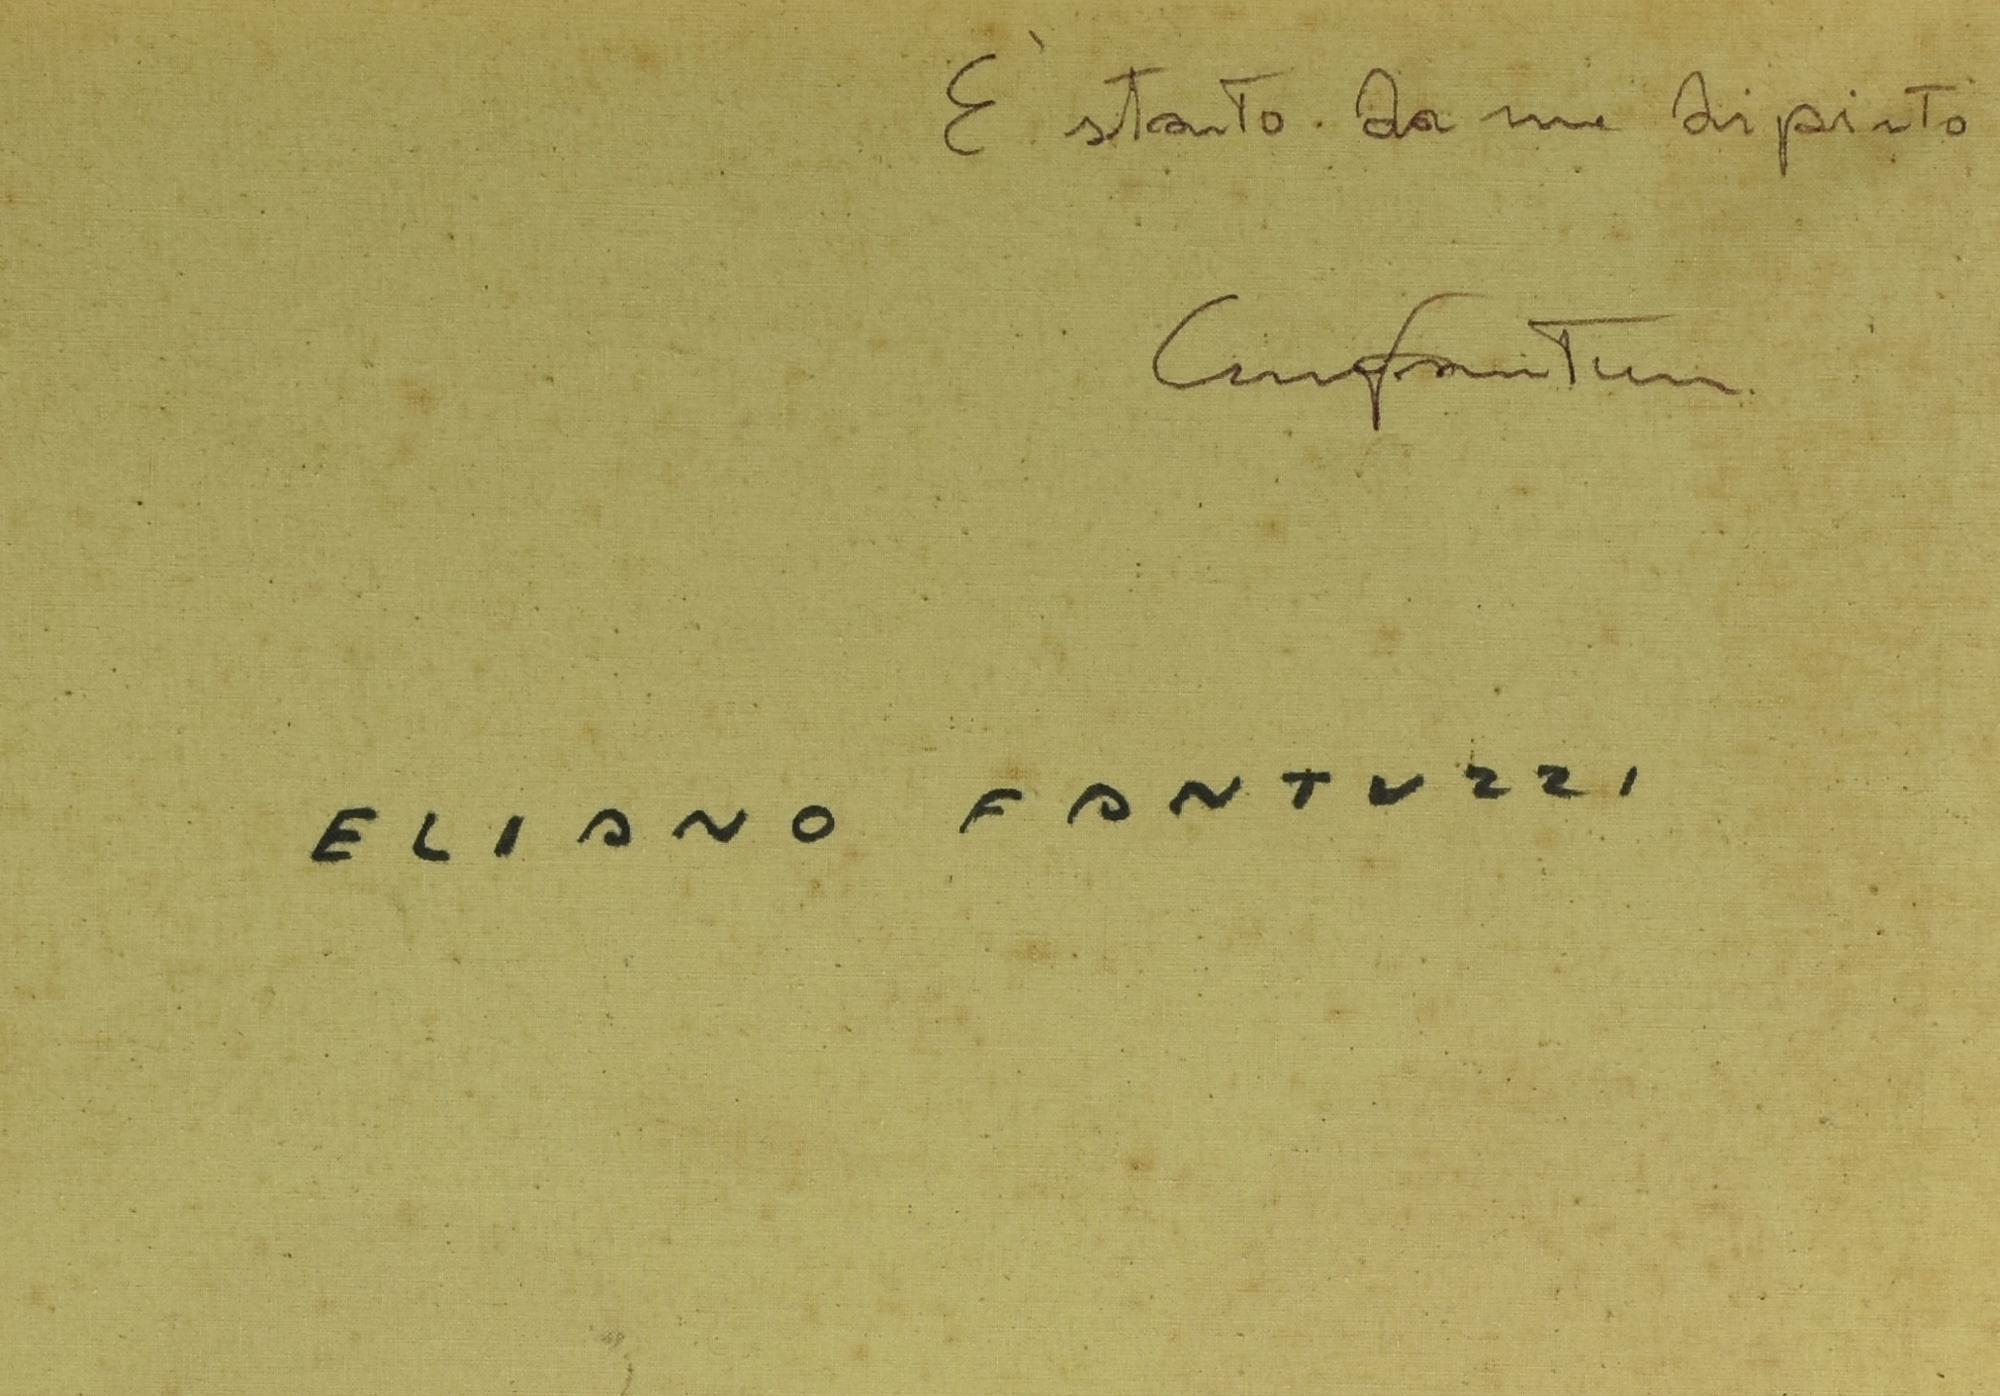 È stato da me dipinto
ELIANO FANTUZZI